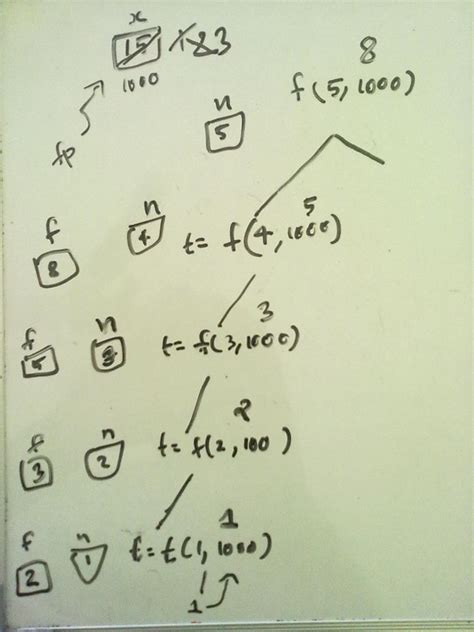 x
15 1 2 3 8
1000 f(5,1000)
fp n
5
f n 5
8 4 t= f(4,1000)
f n 3
5 3 t= f(3,1000)
f n 2
3 2 t= f(2,100)
f n 1
2 1 t= t(1,1000)
1